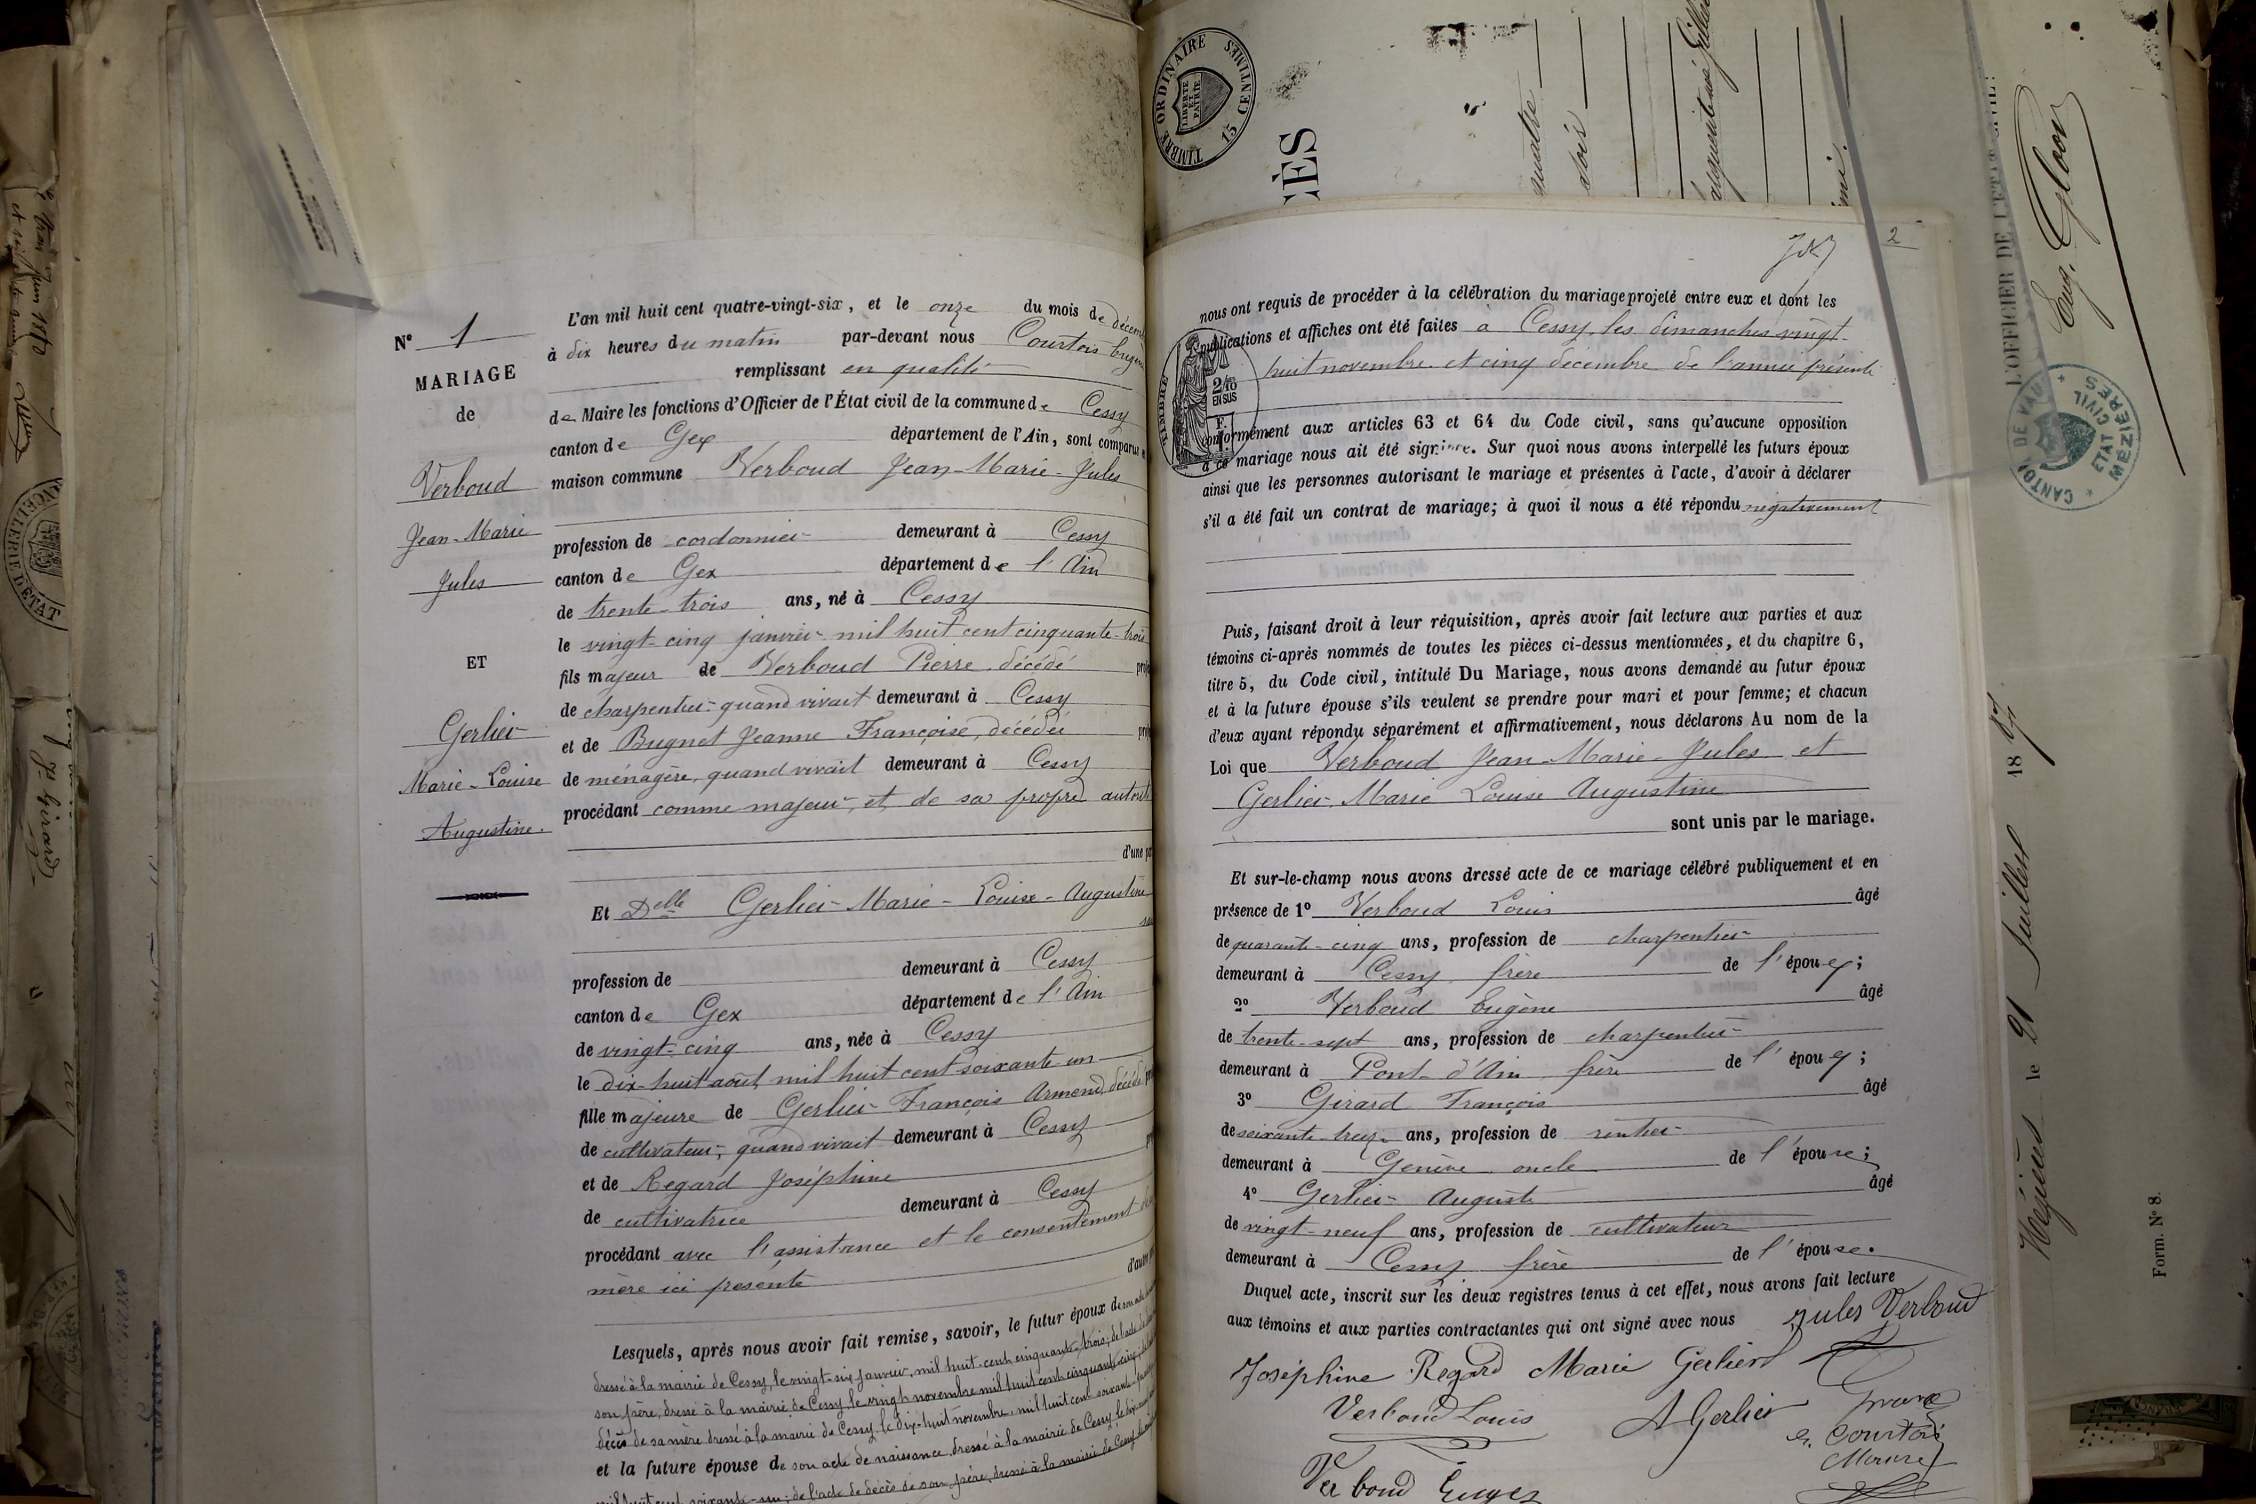 N° 1
MARIAGE
de
Verboud
Jean-Marie
Jules
ET
Gerlier
Marie-Louise
Augustine.
L'an mil huit cent quatre-vingt-six, et le onze du mois de décem
à dix heures du matin par-devant nous Courtois Eugène
remplissant en qualité
de Maire les fonctions d'Officier de l'État civil de la commune de Cessy
canton de Gex département de l'Ain, sont comparus
maison commune Verboud Jean-Marie-Jules
profession de cordonnier demeurant à Cessy
canton de Gex département de l'Ain
de trente-trois ans, né à Cessy
le vingt-cinq janvier mil huit cent cinquante-trois
fils majeur de Verboud Pierre, décédé
de charpentier quand vivait demeurant à Cessy
et de Bugnet Jeanne Françoise, décédée
de ménagère, quand vivait demeurant à Cessy
procédant comme majeur, et de sa propre autorit
d'une pa
Et Delle Gerlier-Marie-Louise-Augustine
profession de demeurant à Cessy
canton de Gex département de l'Ain
de vingt-cinq ans, née à Cessy
le dix-huit août mil huit cent soixante-un
fille majeure de Gerlier François Armend, décédé
de cultivateur, quand vivait demeurant à Cessy
et de Regard Joséphine
de cultivatrice demeurant à Cessy
procédant avec l'assistance et le consentement
mère ici présente
Lesquels, après nous avoir fait remise, savoir, le futur époux de son acte
dressé à la mairie de Cessy, le vingt-six janvier, mil huit cent cinquante-trois; de l'acte de
son père, dressé à la mairie de Cessy le vingt novembre mil huit cent cinquante-cinq;
décès de sa mère dressé à la mairie de Cessy, le dix-huit novembre, mil huit cent soixante
et la future épouse de son acte de naissance dressé à la mairie de Cessy le dix
mil huit cent soixante-un; de l'acte de décès de son père, dressé à la mairie de Cessy
TIMBRE ORDINAIRE 15 CENTIMES
LIBERTÉ ET PATRIE
2
nous ont requis de procéder à la célébration du mariage projeté entre eux et dont les
publications et affiches ont été faites à Cessy, les dimanches vingt-
huit novembre et cinq décembre de l'année présente
TIMBRE
2/10 EN SUS
conformément aux articles 63 et 64 du Code civil, sans qu'aucune opposition
à ce mariage nous ait été signifiée. Sur quoi nous avons interpellé les futurs époux
ainsi que les personnes autorisant le mariage et présentes à l'acte, d'avoir à déclarer
s'il a été fait un contrat de mariage; à quoi il nous a été répondu négativement
Puis, faisant droit à leur réquisition, après avoir fait lecture aux parties et aux
témoins ci-après nommés de toutes les pièces ci-dessus mentionnées, et du chapitre 6,
titre 5, du Code civil, intitulé Du Mariage, nous avons demandé au futur époux
et à la future épouse s'ils veulent se prendre pour mari et pour femme; et chacun
d'eux ayant répondu séparément et affirmativement, nous déclarons Au nom de la
Loi que Verboud Jean-Marie-Jules et
Gerlier, Marie Louise Augustine
sont unis par le mariage.
Et sur-le-champ nous avons dressé acte de ce mariage célébré publiquement et en
présence de 1° Verboud Louis âgé
de quarante-cinq ans, profession de charpentier
demeurant à Cessy frère de l'époux;
2° Verboud Eugène âgé
de trente-sept ans, profession de charpentier
demeurant à Pont-d'Ain frère de l'époux;
3° Gerard François âgé
de soixante-treize ans, profession de rentier
demeurant à Genève oncle de l'épouse;
4° Gerlier Auguste âgé
de vingt-neuf ans, profession de cultivateur
demeurant à Cessy frère de l'épouse.
Duquel acte, inscrit sur les deux registres tenus à cet effet, nous avons fait lecture
aux témoins et aux parties contractantes qui ont signé avec nous
Jules Verboud
Joséphine Regard Marie Gerlier
Verboud Louis A Gerlier
Courtois
Verboud
L'OFFICIER DE L'ÉTAT CIVIL:
CANTON DE VAUD
ETAT CIVIL
MÉZIÈRES
Mézières le 21 Juillet 18
Form. N° 8.